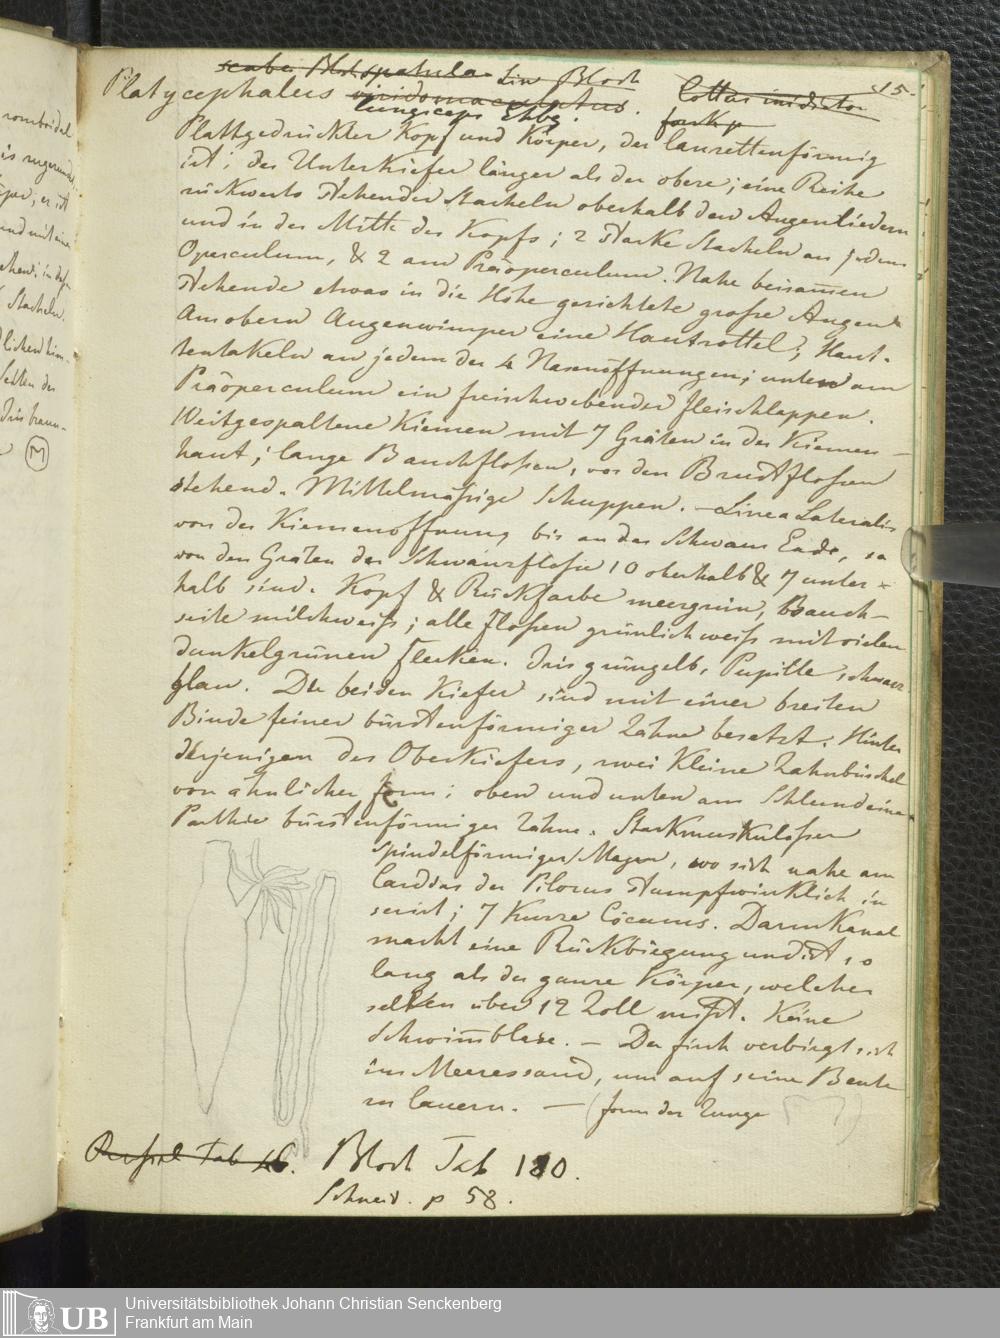 scaber Bl. spatula Lin Bloch
Platycephalus viridomaculatus. Cottus insidiator 15.
tungiceps Ehbg. forskp
Plattgedrückter Kopf und Körper, der lanzettenförmig
ist; der Unterkiefer länger als der obere; eine Reihe
rückwerts stehender Stacheln oberhalb den Augenliedern
und in der Mitte des Kopfs; 2 starke Stacheln an jedem
Operculum, & 2 am Präoperculum. Nahe beisamen
stehende etwas in die Höhe gerichtete große Augen
Am obern Augenwimper eine Hautzottel; Haut-
tentakeln an jedem der 4 Nasenöffnungen; unten am
Präoperculum ein freischwebender Fleischlappen.
Weitgespaltene Kiemen mit 7 Gräten in der Kiemen-
haut; lange Bauchfloßen, vor den Brustfloßen
stehend. Mittelmäßige Schuppen. – Linea Lateralis
von der Kiemenöffnung bis an das Schwanz Ende, so
von den Gräten der Schwanzfloße 10 oberhalb & 7 unter-
halb sind. Kopf & Rückfarbe meergrün, Bauch-
seite milchweiß; alle Floßen grünlich weiß mit vielen
dunkelgrünen Flecken. Iris grüngelb, Pupille schwarz
blau. Die beiden Kiefer sind mit einer breiten
Binde feiner bürstenförmiger Zähne besetzt. Hinter
derjenigen des Oberkiefers, zwei kleine Zahnbüschel
von ähnlicher form; oben und unten am Schlund eine
Parthie bürstenförmiger Zähne. Starkmuskuloser
spindelförmiger Magen, wo sich nahe am
Cardias der Pilorus stumpfwinklich in
serirt; 7 kurze Cöcums. Darmkanal
macht eine Rückbiegung und ist so
lang als der ganze Körper, welcher
selten über 12 Zoll mißt. Keine
Schwimblase. – Der fisch verbirgt sich
im Meeressand, um auf seine Beute
zu lauern. – (form der Zunge )
Tab 16. Bloch Tab 180.
Schneid. p 58.
romboidal
M
UB
Universitätsbibliothek Johann Christian Senckenberg
Frankfurt am Main